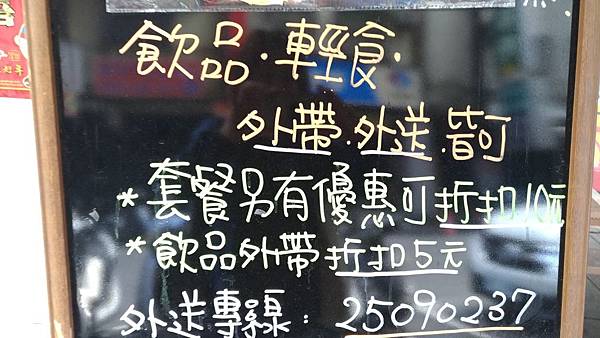 飲品·輕食·
外帶·外送·皆可
*套餐另有優惠可折扣10元
*飲品外帶折扣5元
外送專線：25090237